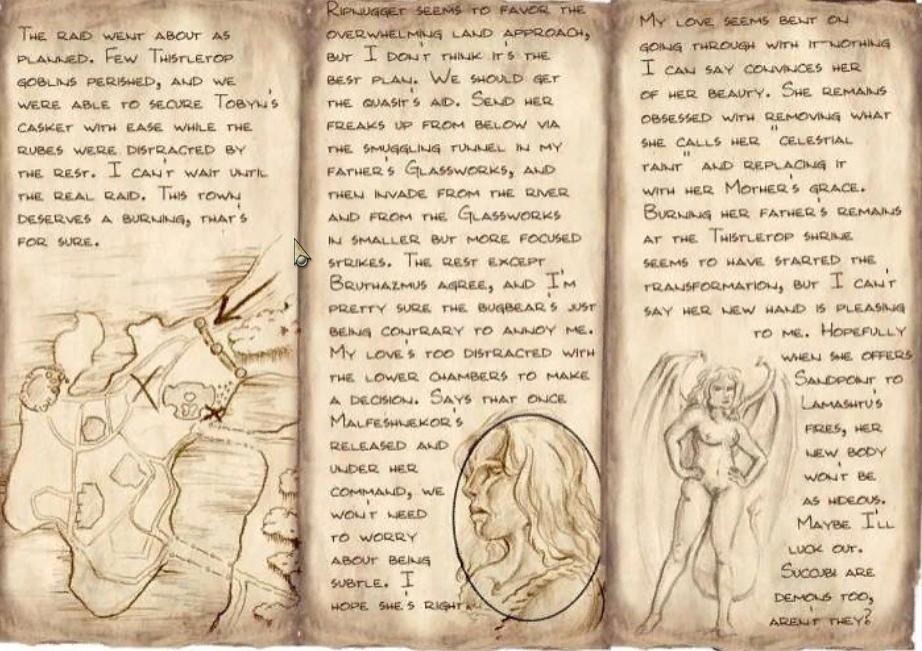 The raid went about as
planned. Few Thistletop
goblins perished, and we
were able to secure Tobyn's
casket with ease while the
rubes were distracted by
the rest. I can't wait until
the real raid. This town
deserves a burning, that's
for sure.
Ripnugget seems to favor the
overwhelming land approach,
but I don't think it's the
best plan. We should get
the quasit's aid. Send her
freaks up from below via
the smuggling tunnel in my
father's Glassworks, and
then invade from the river
and from the Glassworks
in smaller but more focused
strikes. The rest except
Bruthazmus agree, and I'm
pretty sure the bugbear's just
being contrary to annoy me.
My love's too distracted with
the lower chambers to make
a decision. Says that once
Malfeshnekor's
released and
under her
command, we
won't need
to worry
about being
subtle. I
hope she's right
My love seems bent on
going through with it—nothing
I can say convinces her
of her beauty. She remains
obsessed with removing what
she calls her "celestial
taint" and replacing it
with her Mother's grace.
Burning her father's remains
at the Thistletop shrine
seems to have started the
transformation, but I can't
say her new hand is pleasing
to me. Hopefully
when she offers
Sandpoint to
Lamashtu's
fires, her
new body
won't be
as hideous.
Maybe I'll
luck out.
Succubi are
demons too,
aren't they?